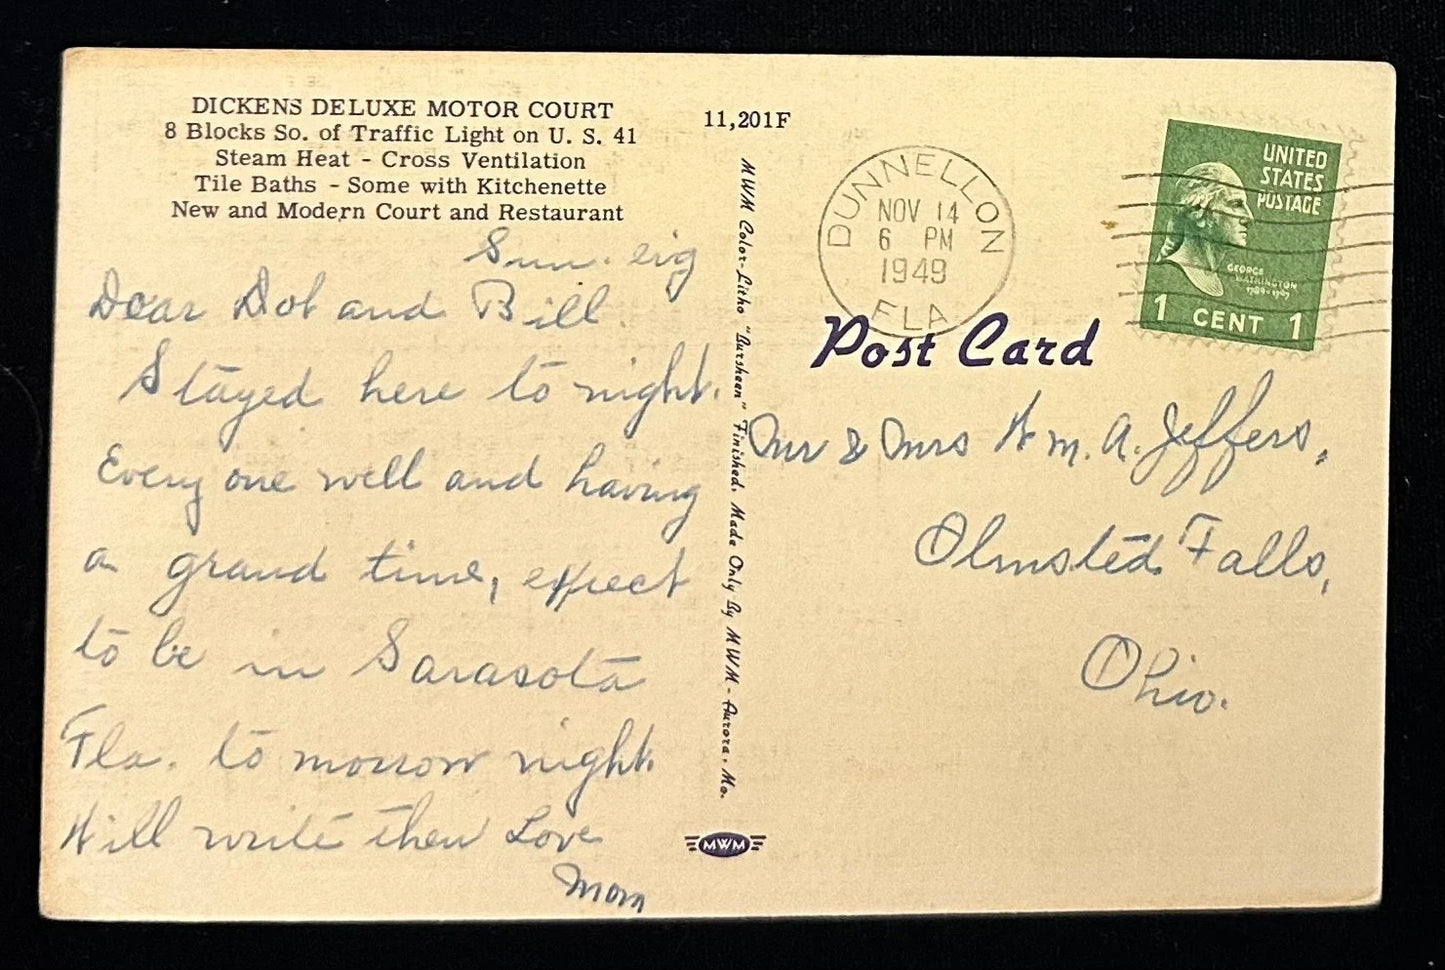 DICKENS DELUXE MOTOR COURT
8 Blocks So. of Traffic Light on U. S. 41
Steam Heat - Cross Ventilation
Tile Baths - Some with Kitchenette
New and Modern Court and Restaurant
Sun. eig
Dear Dot and Bill
Stayed here to night.
Every one well and having
a grand time, expect
to be in Sarasota
Fla. to morrow night.
Will write then Love
Mom
11,201F
MWM Color-Litho "Bursheen" Finished. Made Only By MWM - Aurora, Mo.
MWM
DUNNELLON
NOV 14
6 PM
1949
FLA
UNITED
STATES
POSTAGE
GEORGE
WASHINGTON
1789-1797
1 CENT 1
Post Card
Mr & Mrs Wm. A. Jeffers,
Olmsted Falls,
Ohio.